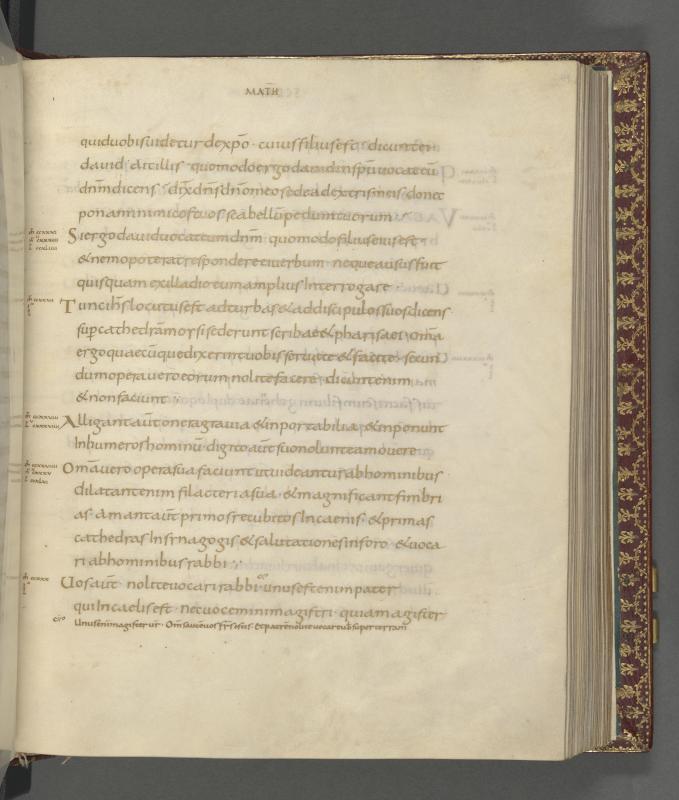 MATH
quid uobis uidetur de xpo · cuius filius est · dicunt ei
dauid · ait illis · quomodo ergo dauid in spu uocat eu
dnm dicens · dix dns dno meo sede ad extris meis · donec
ponam inimicos tuos scabellu pedum tuorum
Si ergo dauid uocat eum dnm · quomodo filius eius est
& nemo poterat respondere ei uerbum · neque ausus fuit
quisquam ex illa die eum amplius Interrogare
Tunc ihs locutus est ad turbas & ad discipulos suos dicens
sup cathedra moysi sederunt scribae & pharisaei · oma
ergo quaecuque dixerint uobis seruate & facite · secun
dum opera uero eorum nolite facere · dicunt enim
& non faciunt
Alligant aut onera grauia & inportabilia · & inponunt
In humeros hominu · digito aut suo nolunt ea mouere
Oma uero opera sua faciunt ut uideantur ab hominibus
dilatant enim filacteria sua · & magnificant fimbri
as · Amant aut primos recubitos In caenis · & primas
cathedras In synagogis & salutationes in foro · & uoca
ri ab hominibus rabbi
Uos aut nolite uocari rabbi · unus est enim pater
qui In caelis est · nec uocemini magistri · quia magister
Unus enim magister ur · Oms aut uos frs estis · Et patre nolite uocare uob super terram